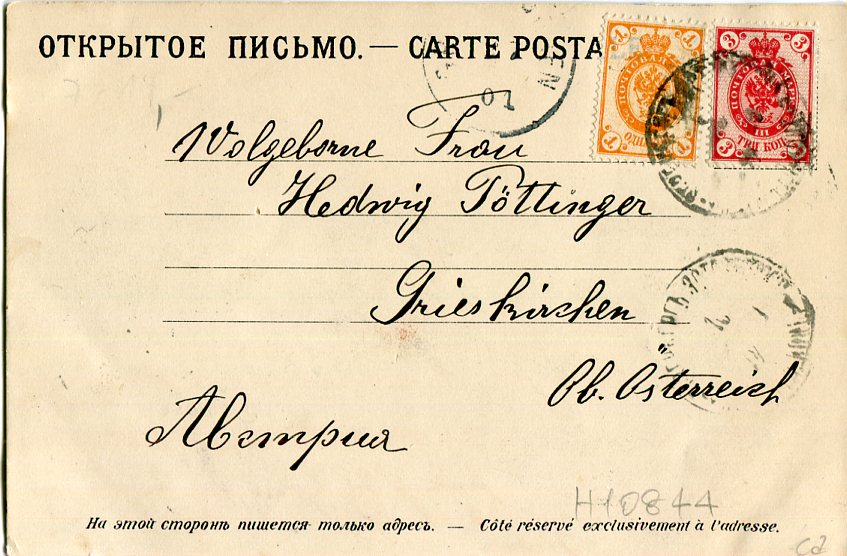 ОТКРЫТОЕ ПИСЬМО. — CARTE POSTA
1 1
ПОЧТОВАЯ
ОДНА
1 1
3 3
ПОЧТОВ МАРК
III
ТРИ КОП
3
07
EN
Wolgeborne Frau
Hedwig Pöttinger
Grieskirchen
Ob. Österreich
Австрия
H10844
На этой сторонѣ пишется только адресъ. — Côté réservé exclusivement à l'adresse.